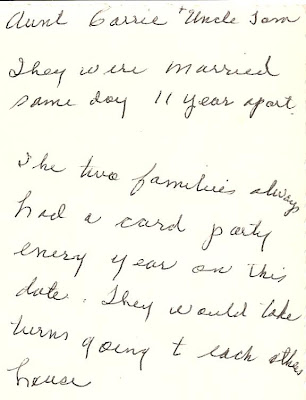 Aunt Carrie + Uncle Tom
They were married
same day 11 year apart.
The two families always
had a card party
enery year on this
date. They would take
turns going t each others
house